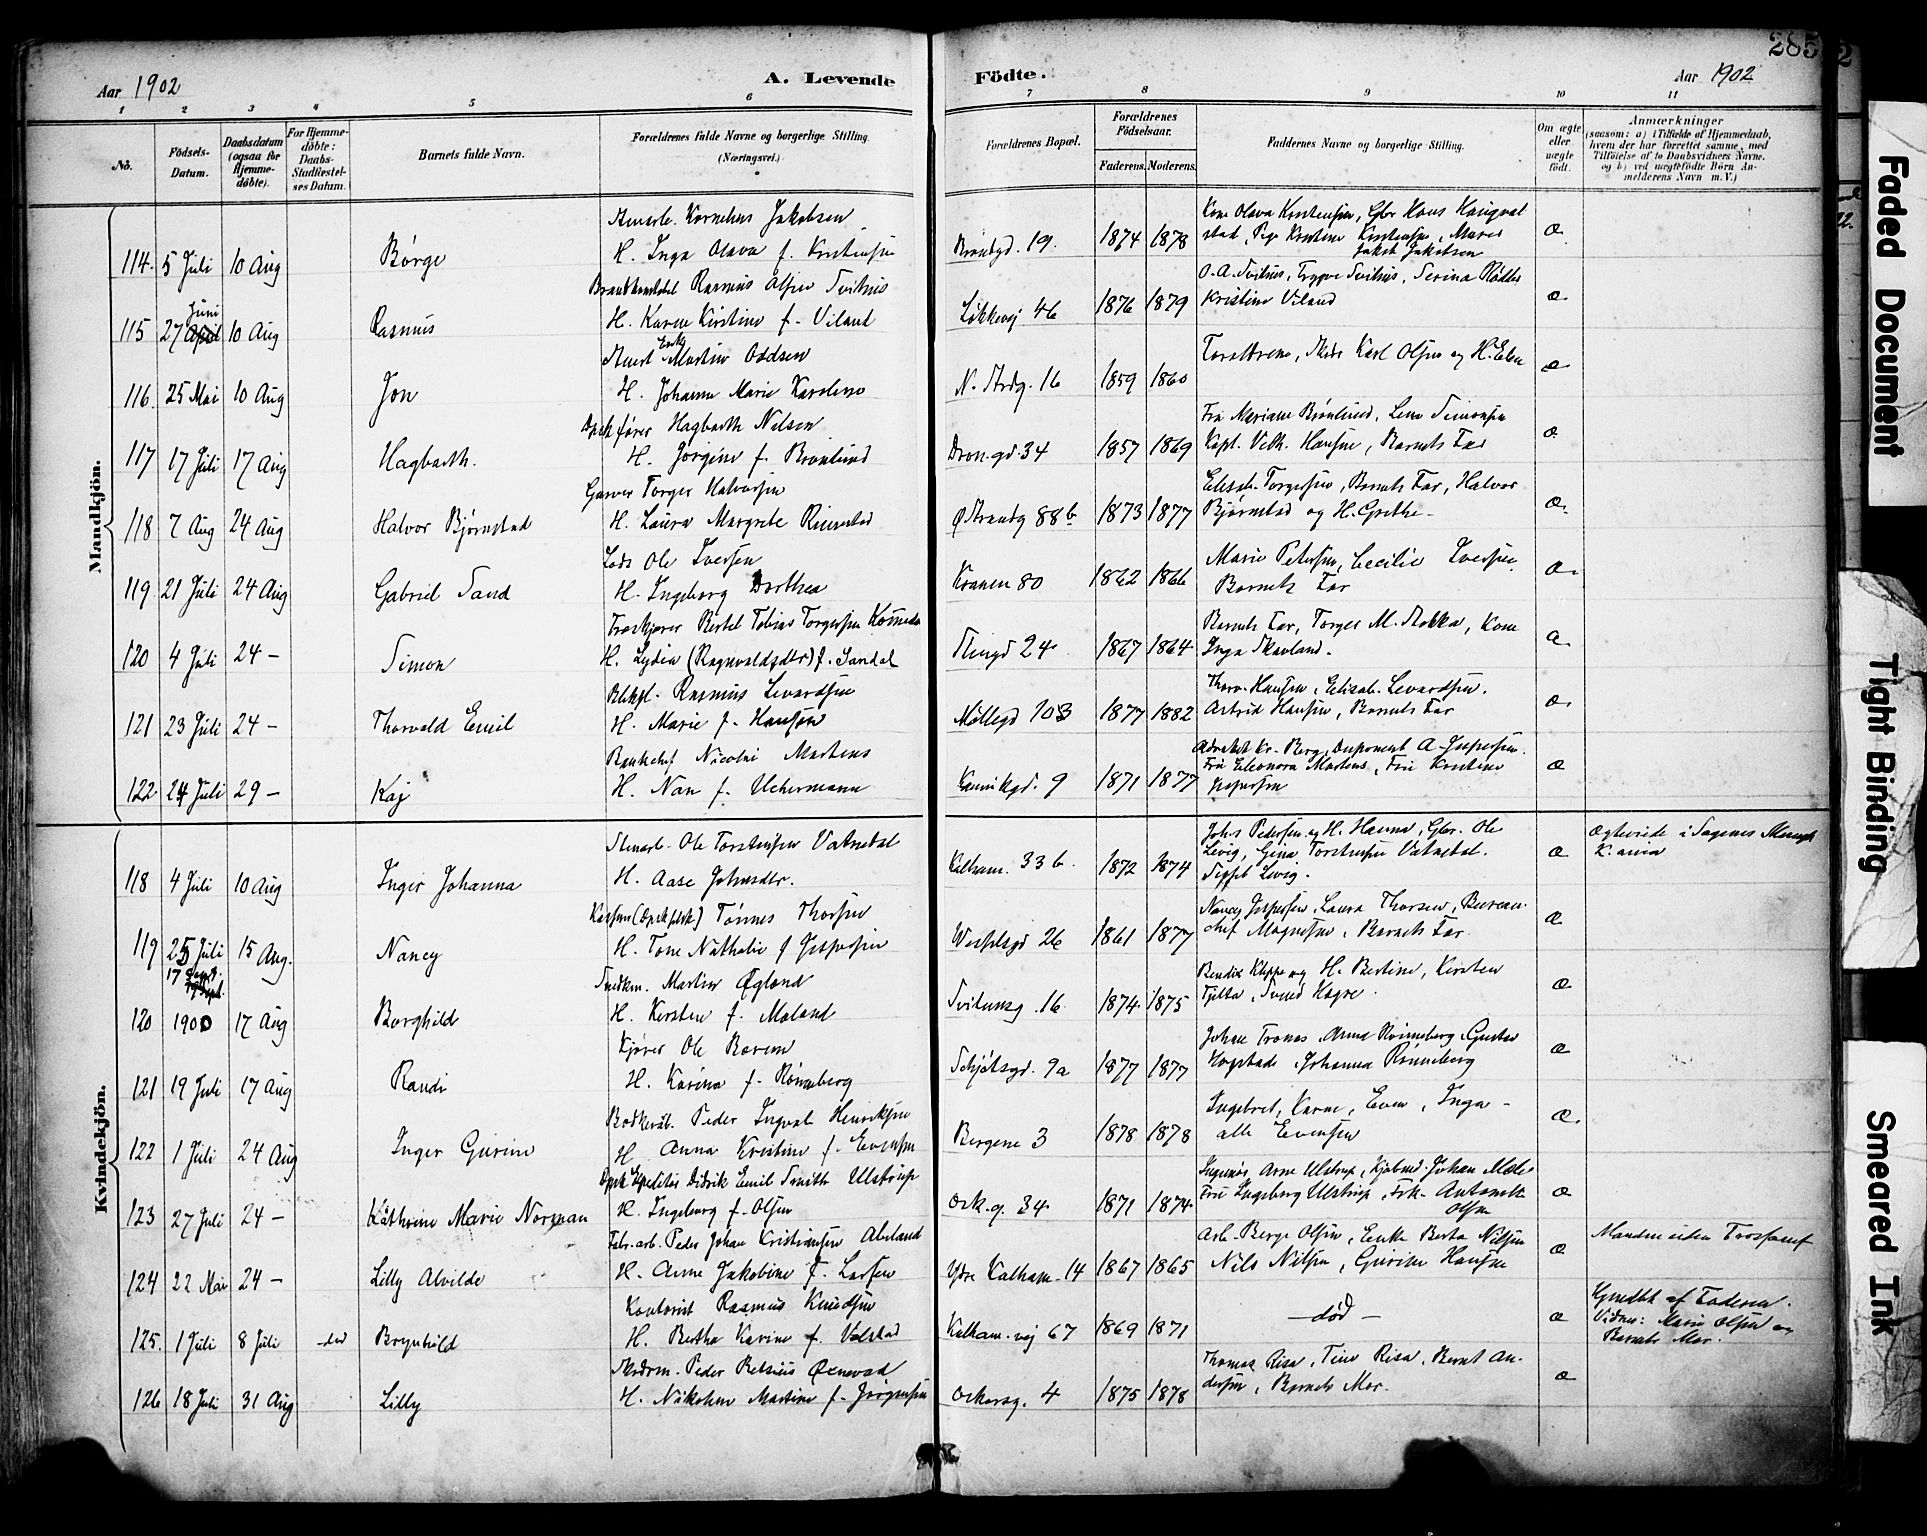 285
Aar 1902
A. Levende
Födte.
Aar 1902
1 2 3 4 5 6 7 8 9 10 11
No.
Födsels-
Datum.
Daabsdatum
(ogsaa for
Hjemme-
döbte).
For Hjemme-
döbte:
Daabs-
Stadfæstel-
ses Datum.
Barnets fulde Navn.
Forældrenes fulde Navne og borgerlige Stilling.
(Næringsvei.)
Forældrenes Bopæl.
Forældrenes
Födselsaar.
Faderens. Moderens.
Faddernes Navne og borgerlige Stilling.
Om ægte
eller
uægte
født.
Anmærkninger
(saasom: a) i Tilfælde af Hjemmedaab,
hvem der har forrettet samme, med
Tilföielse af to Daabsvidners Navne.
og b) ved uægtefödte Börn An-
melderens Navn m. V.)
Mandkjön.
114. 5 Juli 10 Aug Børge
Kornelius Jakobsen
H. Inga Olava f. Kristensen
19. 1874 1878
Kone Olava Kristensen, Hans
Jakob Jakobsen
æ
115 27 Juni 10 Aug Rasmus
Rasmus Olsen Svihus
H. Karen Kirstine f. Viland
Løkkevej 46 1876 1879
O. A. Svihus, Trygve Svihus, Serina
Kristine Viland
æ
116. 25 Mai 10 Aug Jon
Martin Oddsen
H. Johanne Marie Karoline
N. Strdg. 16 1859 1860
Forældrene, Karl Olsen og H. Elen
æ
117 17 Juli 17 Aug Hagbarth.
Hagbarth Nilsen
H. Jørgine f. Brønlund
Dron.gd. 34 1857 1869
Fru Mariane Brønlund, Lene Simonsen
Kapt. Vilh. Hansen, Barnets Far
æ
118 7 Aug 24 Aug Halvor Bjørnstad
Garver Torger Halvorsen
H. Laura Margrete Rimestad
Ø Strandg 88b 1873 1877
Elisab. Torgersen, Barnets Far, Halvor
Bjørnstad og H. Grethe
æ
119 21 Juli 24 Aug Gabriel Sand
Lods Ole Iversen
H. Ingeborg Dorthea
Kranen 80 1862 1866
Marie Petersen, Cecilie Iversen,
Barnets Far
æ
120 4 Juli 24 - Simon
Bertel Tobias Torgersen
H. Lydia (Ragnvaldsdtr) f. Sandal
24 1867 1864
Barnets Far, Torger M. Stokka, Kone
Inga Skavland.
æ
121 23 Juli 24 - Thorvald Emil
Rasmus Levardsen
H. Marie f. Hansen
Møllegd 103 1877 1882
Thorv. Hansen, Elisab. Levardsen.
Astrid Hansen, Barnets Far
æ
122 24 Juli 29 - Kaj
Bankchef Nicolai Martens
H. Nan f. Uchermann
Kannikgd. 9 1871 1877
Advokat Kr. Berg, Disponent A. Jespersen.
Fru Eleonora Martens, Fru Kristine
Jespersen
æ
Kvindekjön.
118 4 Juli 10 Aug Inger Johanna
Ole Torstensen Vatnedal
H. Aase Johnsdtr.
Kalham. 33 b. 1872 1874
Johs Pedersen og H. Hanna, Ole
Levig, Gina Torstensen Vatnedal.
æ
Ægteviede i Sagenes Menigh
K.ania
119 25 Juli 15 Aug. Nancy
Tønnes Thorsen
H. Tone Nathalie f Jespersen
26 1861 1877
Nancy Jespersen, Laura Thorsen, Bureau-
chef Magnesen, Barnets Far
æ
120 17 Sept. 1900 17 Aug Borghild
Martin Øgland
H. Kirsten f. Maland
16. 1874 1875
Bendix Kleppe og H. Bertine, Kirsten
Tjelta,
æ
121 19 Juli 17 Aug Randi
Kjører Ole Barem
H. Karina f. Rönneberg
Schjøtsgd. 9a 1877 1877
Johan Tromas, Anna Rönneberg, Gustav
Hogstad, Johanna Rönneberg
æ
122 1 Juli 24 Aug Inger Gurine
Peder Ingvald Henriksen
H. Anna Kristine f. Evensen
Bergene 3 1878 1878
Ingebret, Karen, Even, Inga -
alle Evensen
æ.
123 27 Juli 24 - Kathrine Marie Norman
Didrik Emil Smith Ulstrup
H. Ingeborg f. Olsen
Osk. g. 34 1871 1874
Ingeniør Arne Ulstrup, Johan
Fru Ingeborg Ulstrup, Frk. Antonette
Olsen
æ
124 22 Mai 24 - Lilly Alvilde
Fabr. arb. Peder Johan Kristiansen Abeland
H. Anne Jakobine f. Larsen
Ydre Kalham. 14 1867 1865
Arb. Berge Olsen, Enke Berta Nilsen
Nils Nilsen, Gurine Hansen
æ
Manden uden Trossamf
125. 1 Juli 8 Juli død Brynhild
Kontorist Rasmus Knudsen
H. Bertha Karine f. Volstad
Kalham. vej 67 1869 1871
- død -
æ
af Faderen.
Vidner: Marie Olsen og
Barnets Mor.
126 18 Juli 31 Aug Lilly
Peder Øxnevad
H. Martine f. Jørgensen
Oskarsg. 4 1875 1878
Thomas Risa, Tine Risa, Bernt An-
dersen, Barnets Mor.
æ
Faded Document
Tight Binding
Smeared Ink